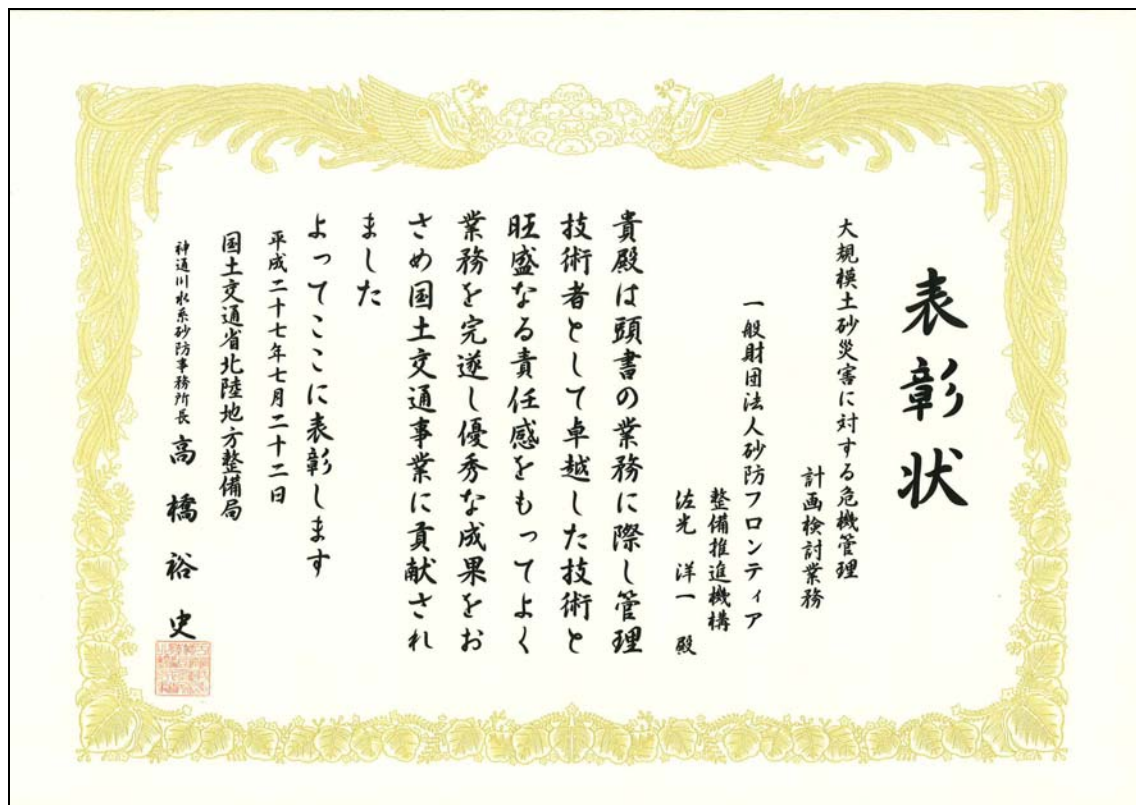 表彰状
大規模土砂災害に対する危機管理
計画検討業務
一般財団法人砂防フロンティア
整備推進機構
佐光洋一殿
貴殿は頭書の業務に際し管理
技術者として卓越した技術と
旺盛なる責任感をもってよく
業務を完遂し優秀な成果をお
さめ国土交通事業に貢献され
ました
よってここに表彰します
平成二十七年七月二十二日
国土交通省北陸地方整備局
神通川水系砂防事務所長 高橋裕史